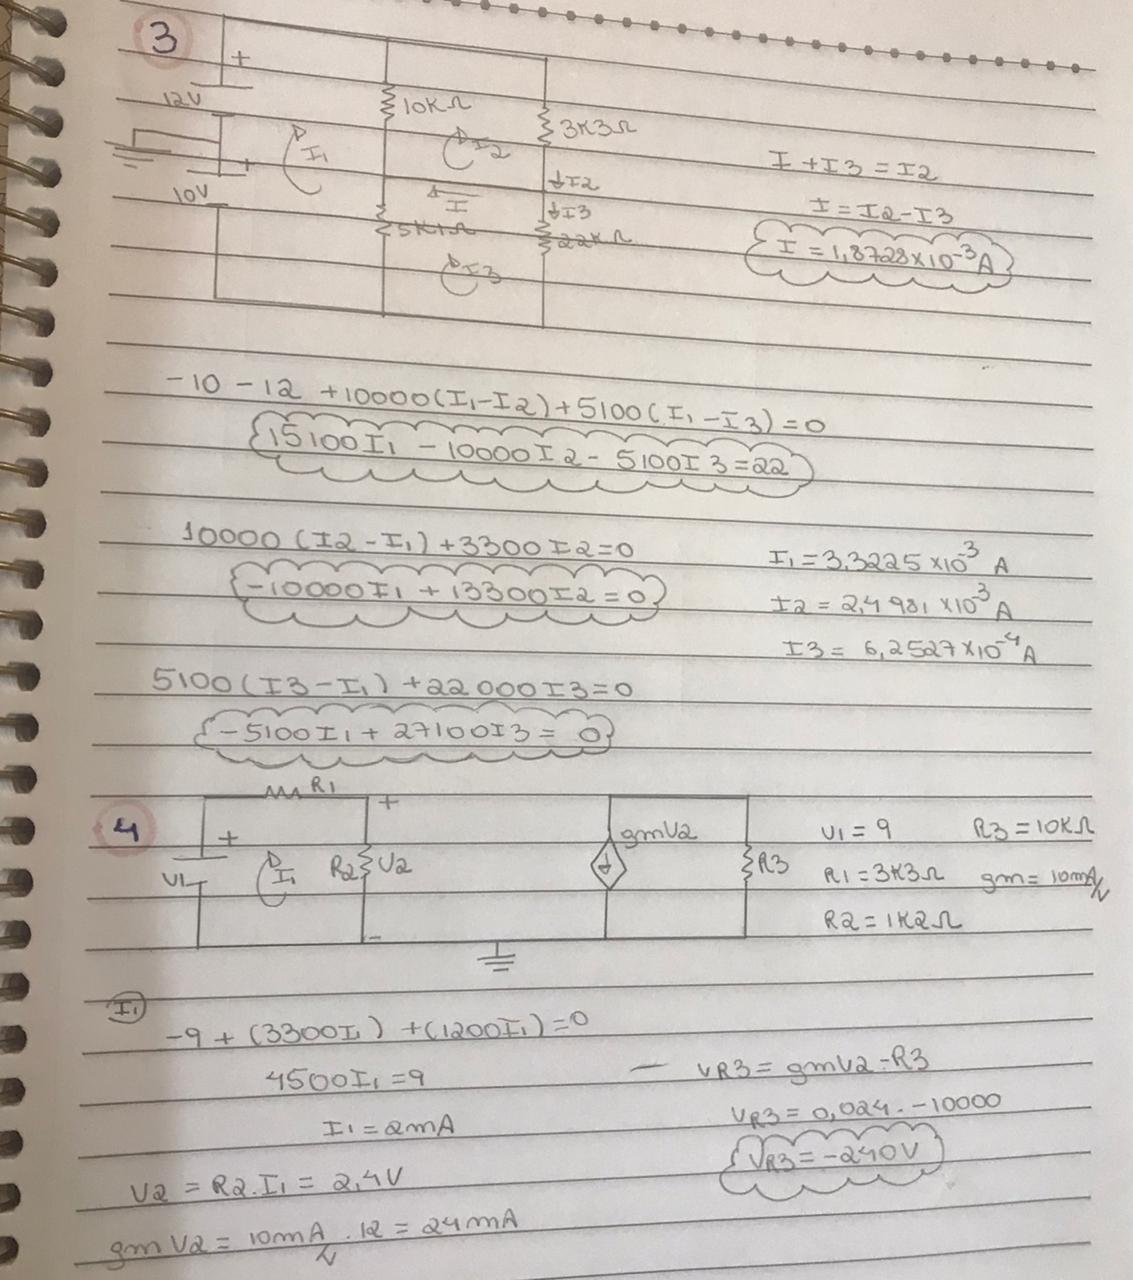 3
+
12V
10KΩ
3K3Ω
I1
I2
+
10V
I
↓I2
↓I3
5K1Ω
22KΩ
I3
I + I3 = I2
I = I2 - I3
I = 1,8728×10⁻³A
-10 - 12 + 10000(I1-I2) + 5100(I1-I3) = 0
15100I1 - 10000I2 - 5100I3 = 22
10000(I2-I1) + 3300I2 = 0
-10000I1 + 13300I2 = 0
I1 = 3,3225×10⁻³ A
I2 = 2,4981×10⁻³ A
I3 = 6,2527×10⁻⁴ A
5100(I3-I1) + 22000I3 = 0
-5100I1 + 27100I3 = 0
4
R1
+
+
V1
I1
R2
V2
-
gmV2
↓
R3
V1 = 9 R3 = 10KΩ
R1 = 3K3Ω gm = 10mA/V
R2 = 1K2Ω
I1
-9 + (3300I1) + (1200I1) = 0
4500I1 = 9
I1 = 2mA
V2 = R2.I1 = 2,4V
gmV2 = 10mA/V . 12 = 24mA
— VR3 = gmV2 - R3
VR3 = 0,024 . -10000
VR3 = -240V